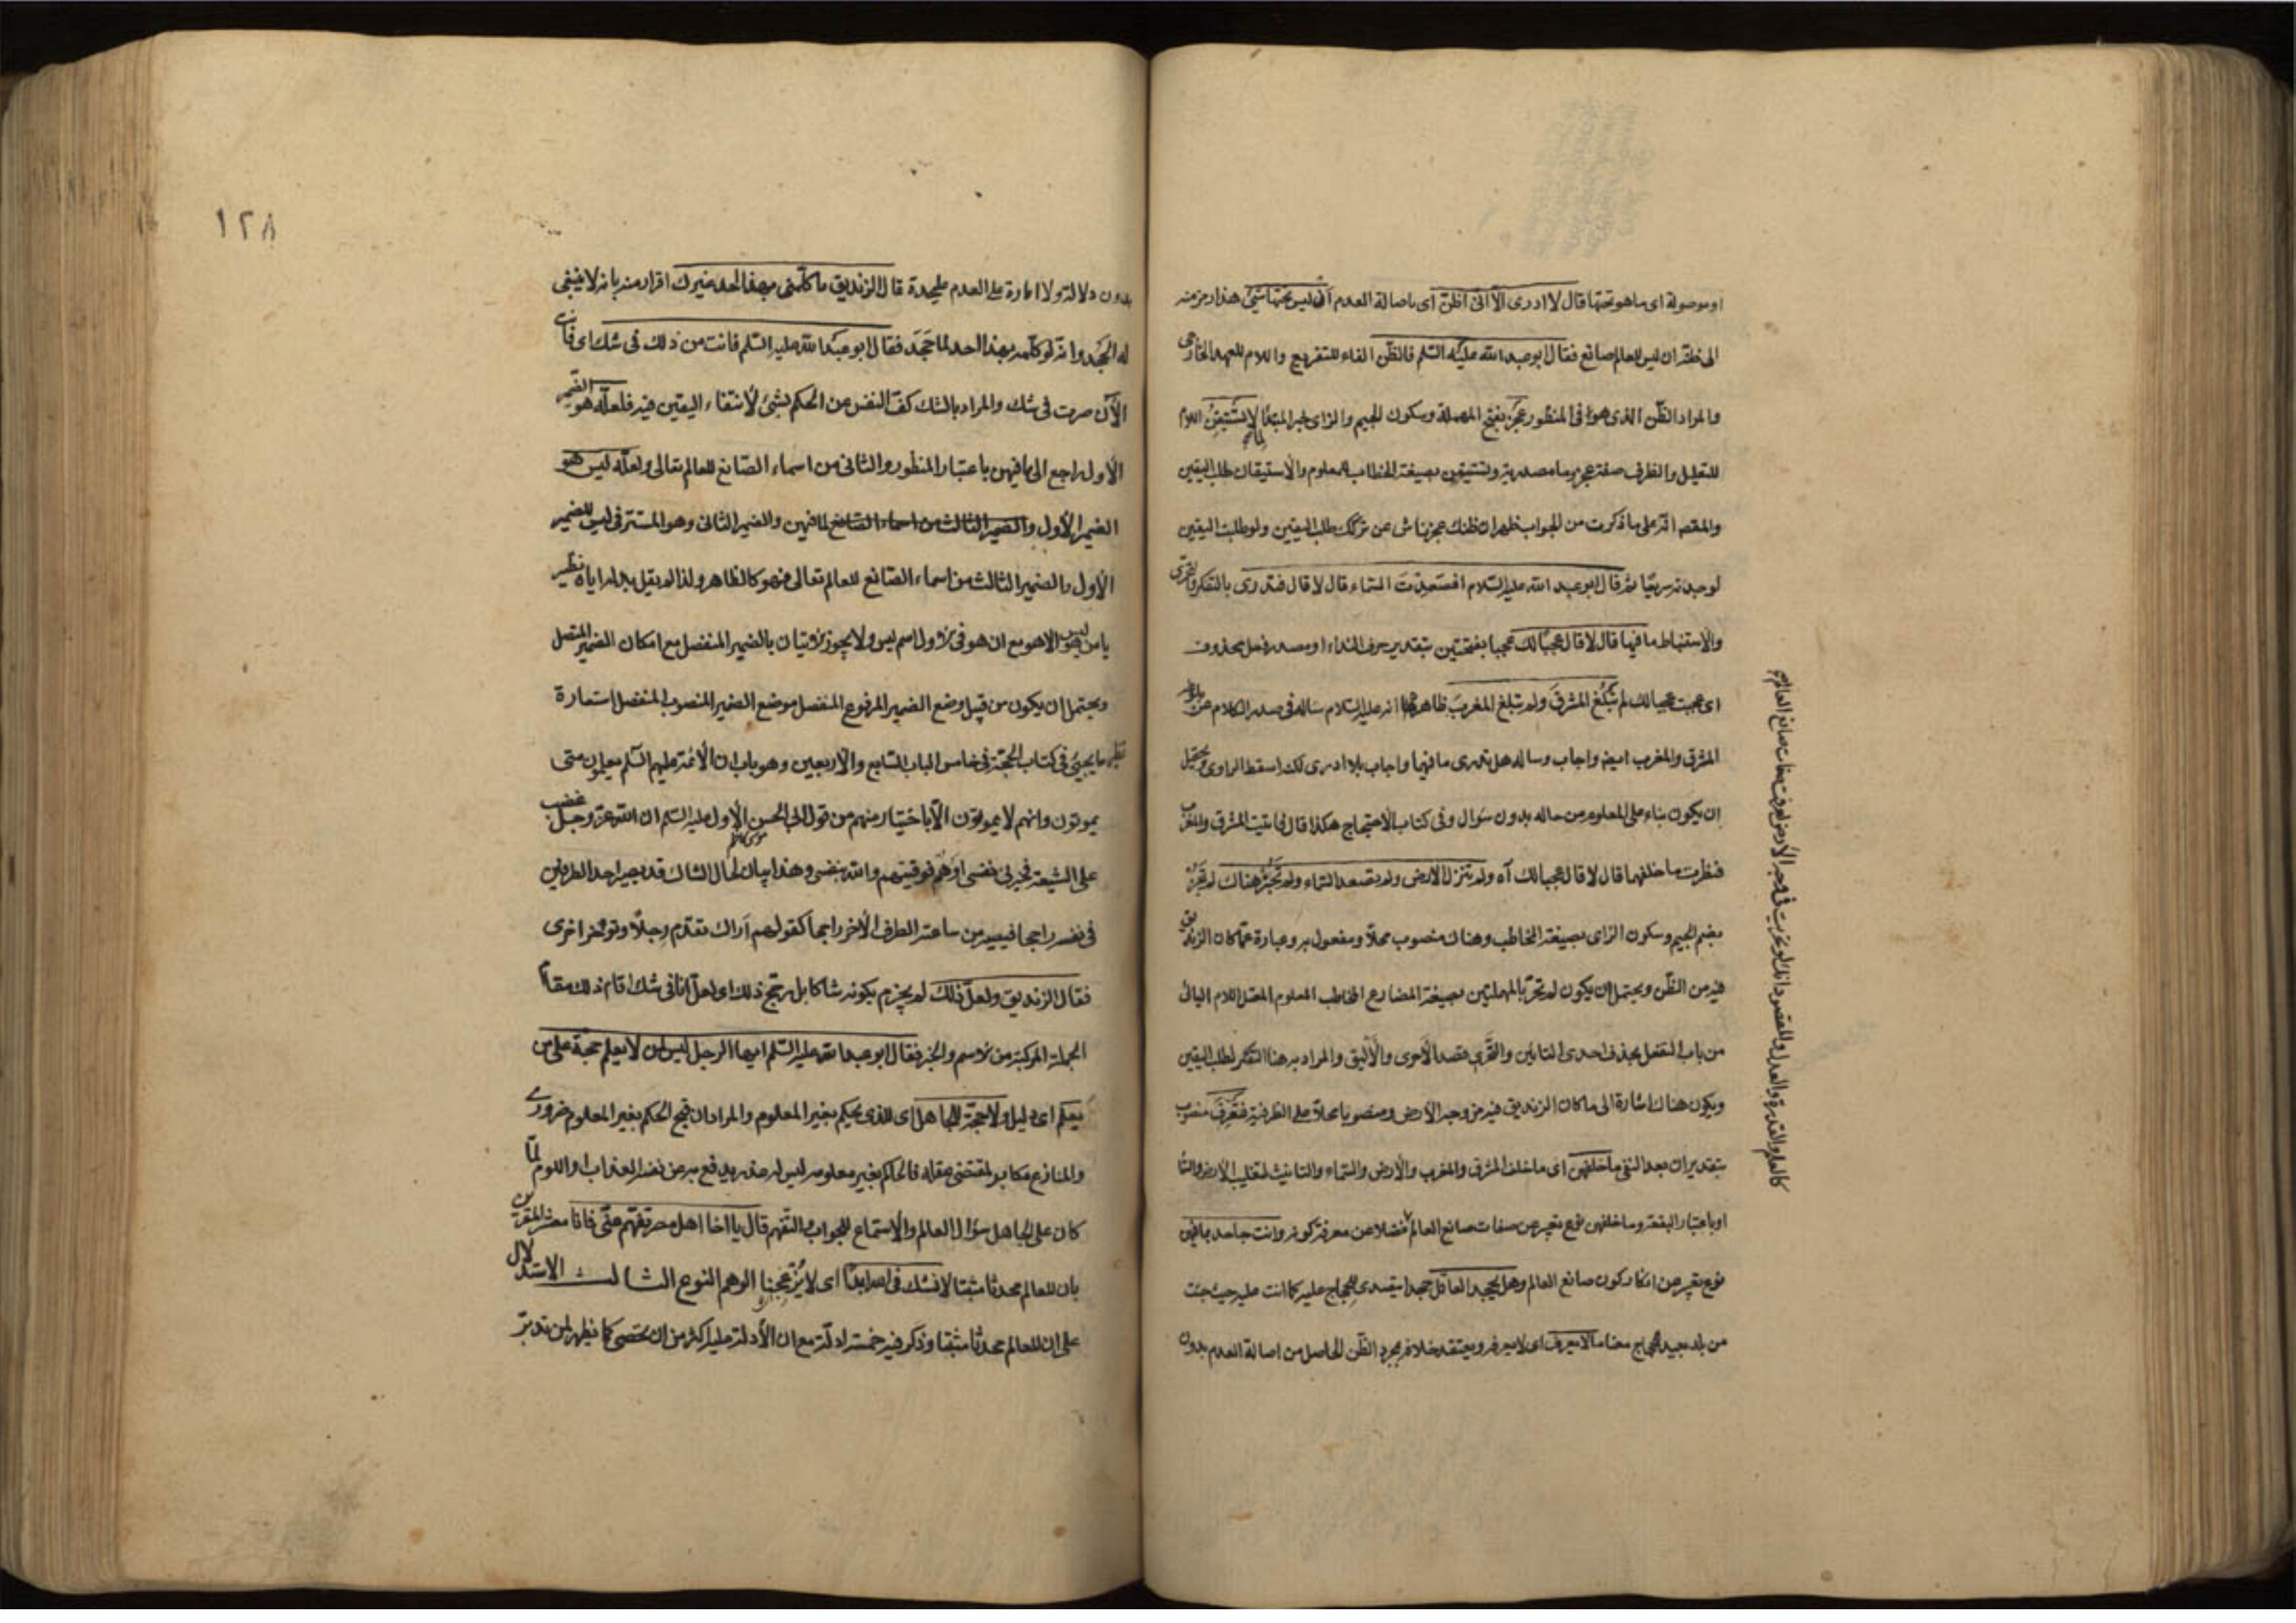 او موصولة اى ما هو تحتها قال لا ادرى الّا انّى اظنّ اى باصالة العدم ان ليس تحتها شئ هذا رمز منه
الى ظنّه ان ليس للعالم صانع فقال ابو عبد الله عليه السّلم فالظّن الفاء للتفريع واللام للعهد الخارجى
والمراد الظّن الذى هو فى المنظور عجز بفتح المهملة وسكون الجيم والزاى خبر المبتدأ لما لا تستيقن اللام
للتعليل والظرف صفة عجز وما مصدرية وتستيقن بصيغة الخطاب المعلوم والاستيقان طلب اليقين
والمقصد انّه على ما ذكرت من الجواب ظهر ان ظنك عجز ناش عن تركك طلب اليقين ولو طلبت اليقين
لوجدته سريعًا ثمّ قال ابو عبد الله عليه السّلام افصعدت السّماء قال لا قال فتدرى بالتفكر والتحرى
والاستنباط ما فيها قال لا قال عجبًا لك عجبا بفتحتين بتقدير حرف النداء او مصدر فعل محذوف
اى عجبت عجبا لك لم تبلغ المشرق ولم تبلغ المغرب ظاهر هذا انه عليه السّلام سأله فى صدر الكلام عن بلوغ
المشرق والمغرب ايضا واجاب وسأله هل تدرى ما فيها واجاب بلا ادرى لكن اسقط الراوى ويحتمل
ان يكون بناء على المعلوم من حاله بدون سؤال وفى كتاب الاحتجاج هكذا قال فاتيت المشرق والمغرب
فنظرت ما خلفهما قال لا قال عجبا لك آه ولم تنزل الارض ولم تصعد السّماء ولم تجز هناك لم تجز
بضم الجيم وسكون الزاى بصيغة الخاطب وهناك منصوب محلّا ومفعول به وعبارة عمّا كان الزنديق
فيه من الظّن ويحتمل ان يكون لم تحرّ بالمهملتين بصيغة المضارع المخاطب المعلوم المعتل اللام اليائى
من باب التفعل بحذف احدى التائين والتحرّى قصد الاحرى والاليق والمراد به هنا التفكر لطلب اليقين
ويكون هناك اشارة الى ما كان الزنديق فيه من وجه الارض ومنصوبا محلّا على الظرفية فتعرف منصوب
بتقدير ان بعد النفى ما خلفهنّ اى ما خلف المشرق والمغرب والارض والسّماء والتانيث لتغليب الارض والسّما
او باعتبار البقعة وما خلفهن نوع تعبير عن صفات صانع العالم فضلا عن معرفة كونه وانت جاحد بما فيهن
نوع تعبير عن انكار كون صانع العالم وهل يجحد العاقل جحدا يتصدى للحجاج عليه كما انت عليه حيث جئت
من بلد بعيد للحجاج معنا ما لا يعرف اى لا يعرفه ويعتقد خلافه بمجرد الظّن الحاصل من اصالة العدم بدون
كالعلم والقدرة والعدل والمقصود انك لو تحرّيت فى وجه الارض لعرفت صفات صانع العالم
١٢٨
بدون دلالة ولا امارة على العدم عليحدة قال الزنديق ما كلّمنى بهذا احد غيرك اقرار منه بانه لا ينبغى
له الجحد وانّه لو كلّمه بهذا احد لما جحد فقال ابو عبد الله عليه السّلم فانت من ذلك فى شك اى فانت
الآن صرت فى شك والمراد بالشك كفّ النفس عن الحكم بشئ لانتفاء اليقين فيه فلعلّه هو الضّمير
الاول راجع الى ما فيهن باعتبار المنظور والثانى من اسماء الصّانع للعالم تعالى ولعلّه ليس هو
الضمير الاول والضمير الثالث من اسماء الصّانع لما فيهن والضمير الثانى وهو المستتر فى ليس للضمير
الاول والضمير الثالث من اسماء الصّانع للعالم تعالى فهو كالظاهر ولذا لم يقل بدله اياه نظير
يا من ليس هو الّا هو مع ان هو فى الاول اسم ليس ولا يجوز الاتيان بالضمير المنفصل مع امكان الضمير المتصل
ويحتمل ان يكون من قبيل وضع الضمير المرفوع المنفصل موضع الضمير المنصوب المنفصل استعارة
نظير ما يجيئ فى كتاب الحجّة فى خامس الباب السّابع والاربعين وهو باب ان الائمة عليهم السّلم يعلمون متى
يموتون وانهم لا يموتون الّا باختيار منهم من قول ابى الحسن الاول موسى الكاظم عليه السّلم ان الله عزّ وجلّ غضب
على الشيعة فخيرنى نفسى او هم فوقيتهم والله بنفسى وهذا بيان لحال الشاك قد يصير احد الطرفين
فى نفسه راجحا فيصير من ساعته الطرف الاخر راجحا كقولهم اراك تقدّم رجلًا وتؤخر اخرى
فقال الزنديق ولعلّ ذلك لم يجزم بكونه شاكا بل رجح ذلك اى لعلّ انا فى شك اقام ذلك مقام
الجملة المركبة من الاسم والخبر فقال ابو عبد الله عليه السّلم ايها الرجل ليس لمن لا يعلم حجّة على من
يعلم اى دليل ولا حجة للجاهل اى للذى يحكم بغير المعلوم والمراد ان قبح الحكم بغير المعلوم ضرورى
والمنازع مكابر لمقتضى عقله فالحاكم بغير معلوم ليس له عذر يدفع به عن نفسه العذاب واللوم لمّا
كان على الجاهل سؤال العالم والاستماع للجواب التفهم قال يا اخا اهل مصر تفهّم عنّى فانا معشر المقرين
بان للعالم محدثا مثبتا لا نشك فى الله ابدًا اى لا يزعجنا الوهم النوع الثالث الاستدلال
على ان للعالم محدثا مثبتا وذكر فيه خمسة ادلة مع ان الادلة عليه اكثر من ان تحصى كما يظهر لمن تدبّر